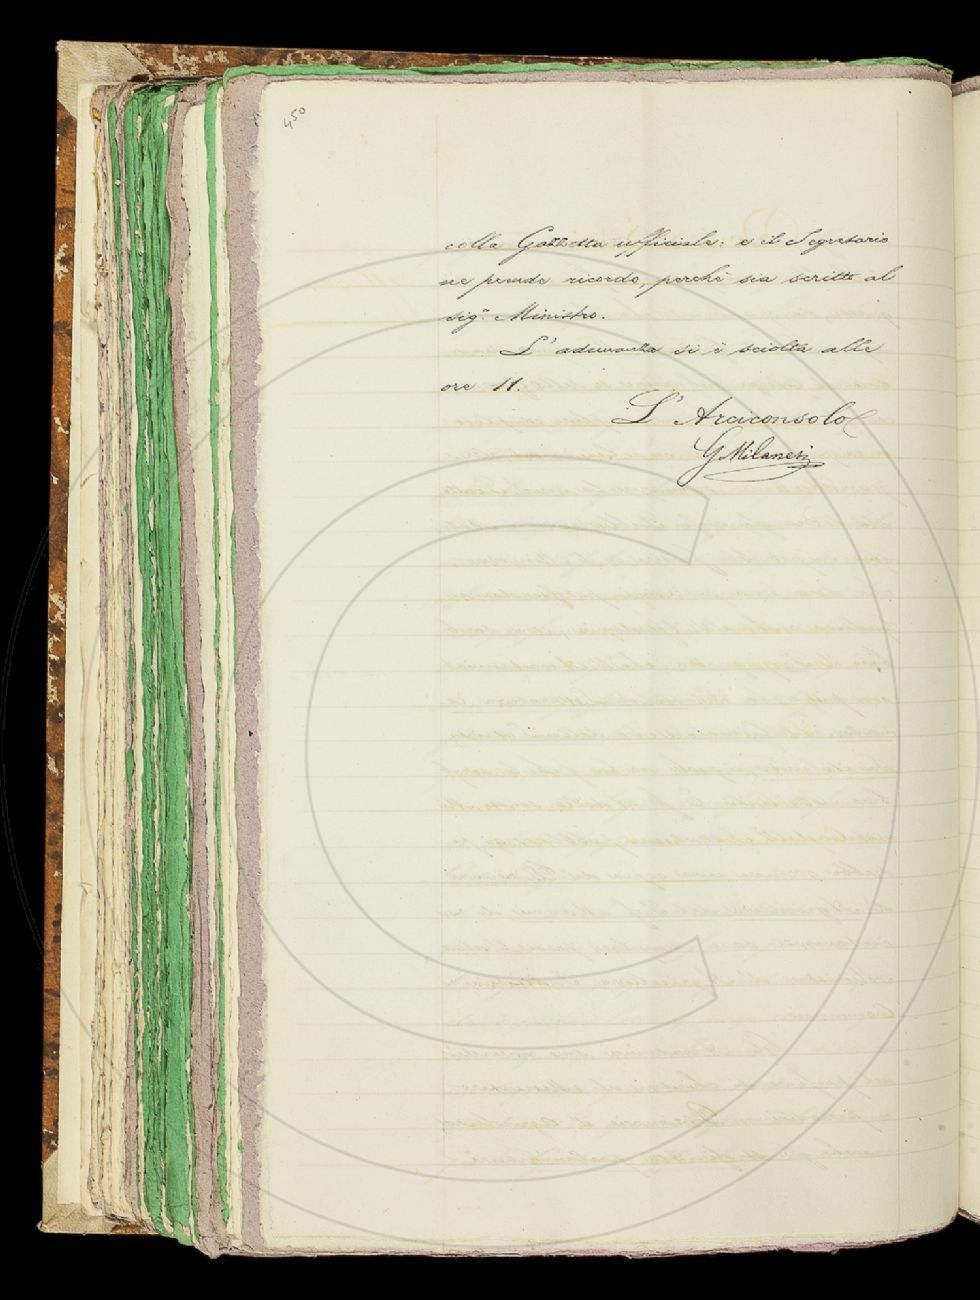 450
colla Gazzetta ufficiale: e il Segretario
ne prende ricordo, perchè sia scritto al
sig.r Ministro.
L'adunanza si è sciolta alle
ore 11.
L'Arciconsolo
G Milanesi